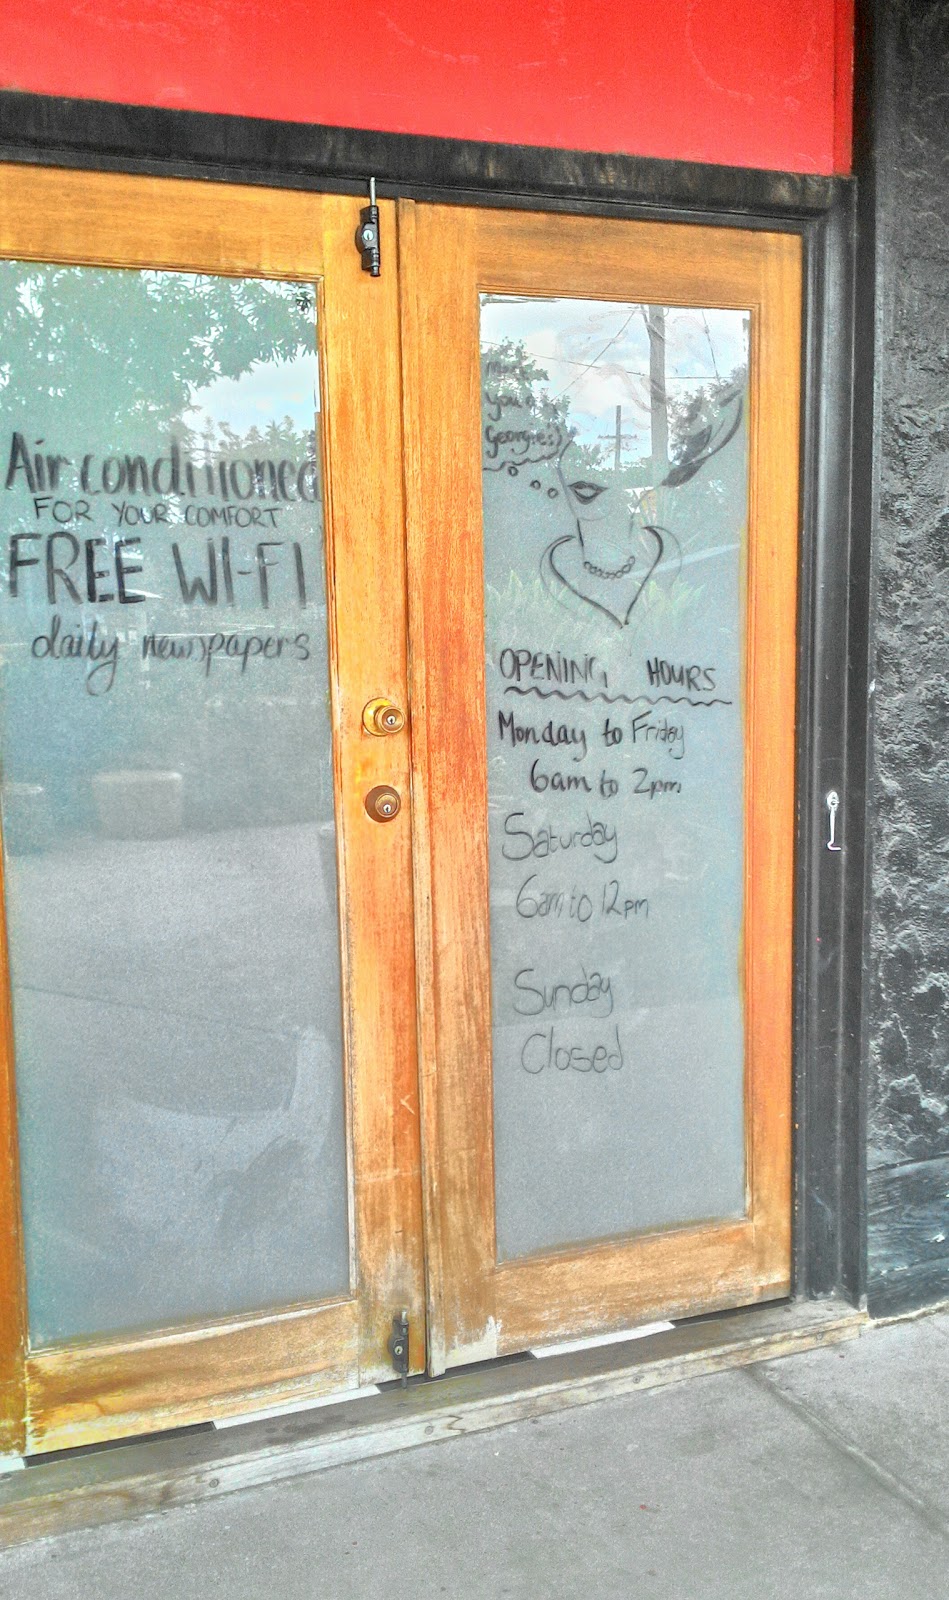 Air conditioned
FOR YOUR COMFORT
FREE WI-FI
daily newspapers
you @
Georgies)
OPENING HOURS
Monday to Friday
6am to 2pm
Saturday
6am to 12pm
Sunday
Closed